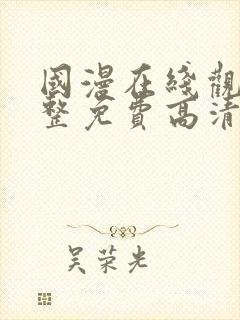 國漫在綫觀
整免費高清
吴荣光